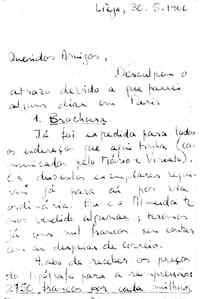 Liège, 30.5.1966
Queridos Amigos,
Desculpem o
atrazo devido a que passei
alguns dias em Paris
1. Brochura
Já foi expedida para todos
os endereços que aqui tinha (co-
municados pelo Mário e Viriato).
Os duzentos exemplares
já para aí por via
ordinária. Eu e o Almeida te-
mos vendido algumas; teremos
já uns mil francos sem contar
com as despesas de correio.
Acabo de receber os preços
do tipógrafo para a reimpressão:
2150 francos por cada milhar